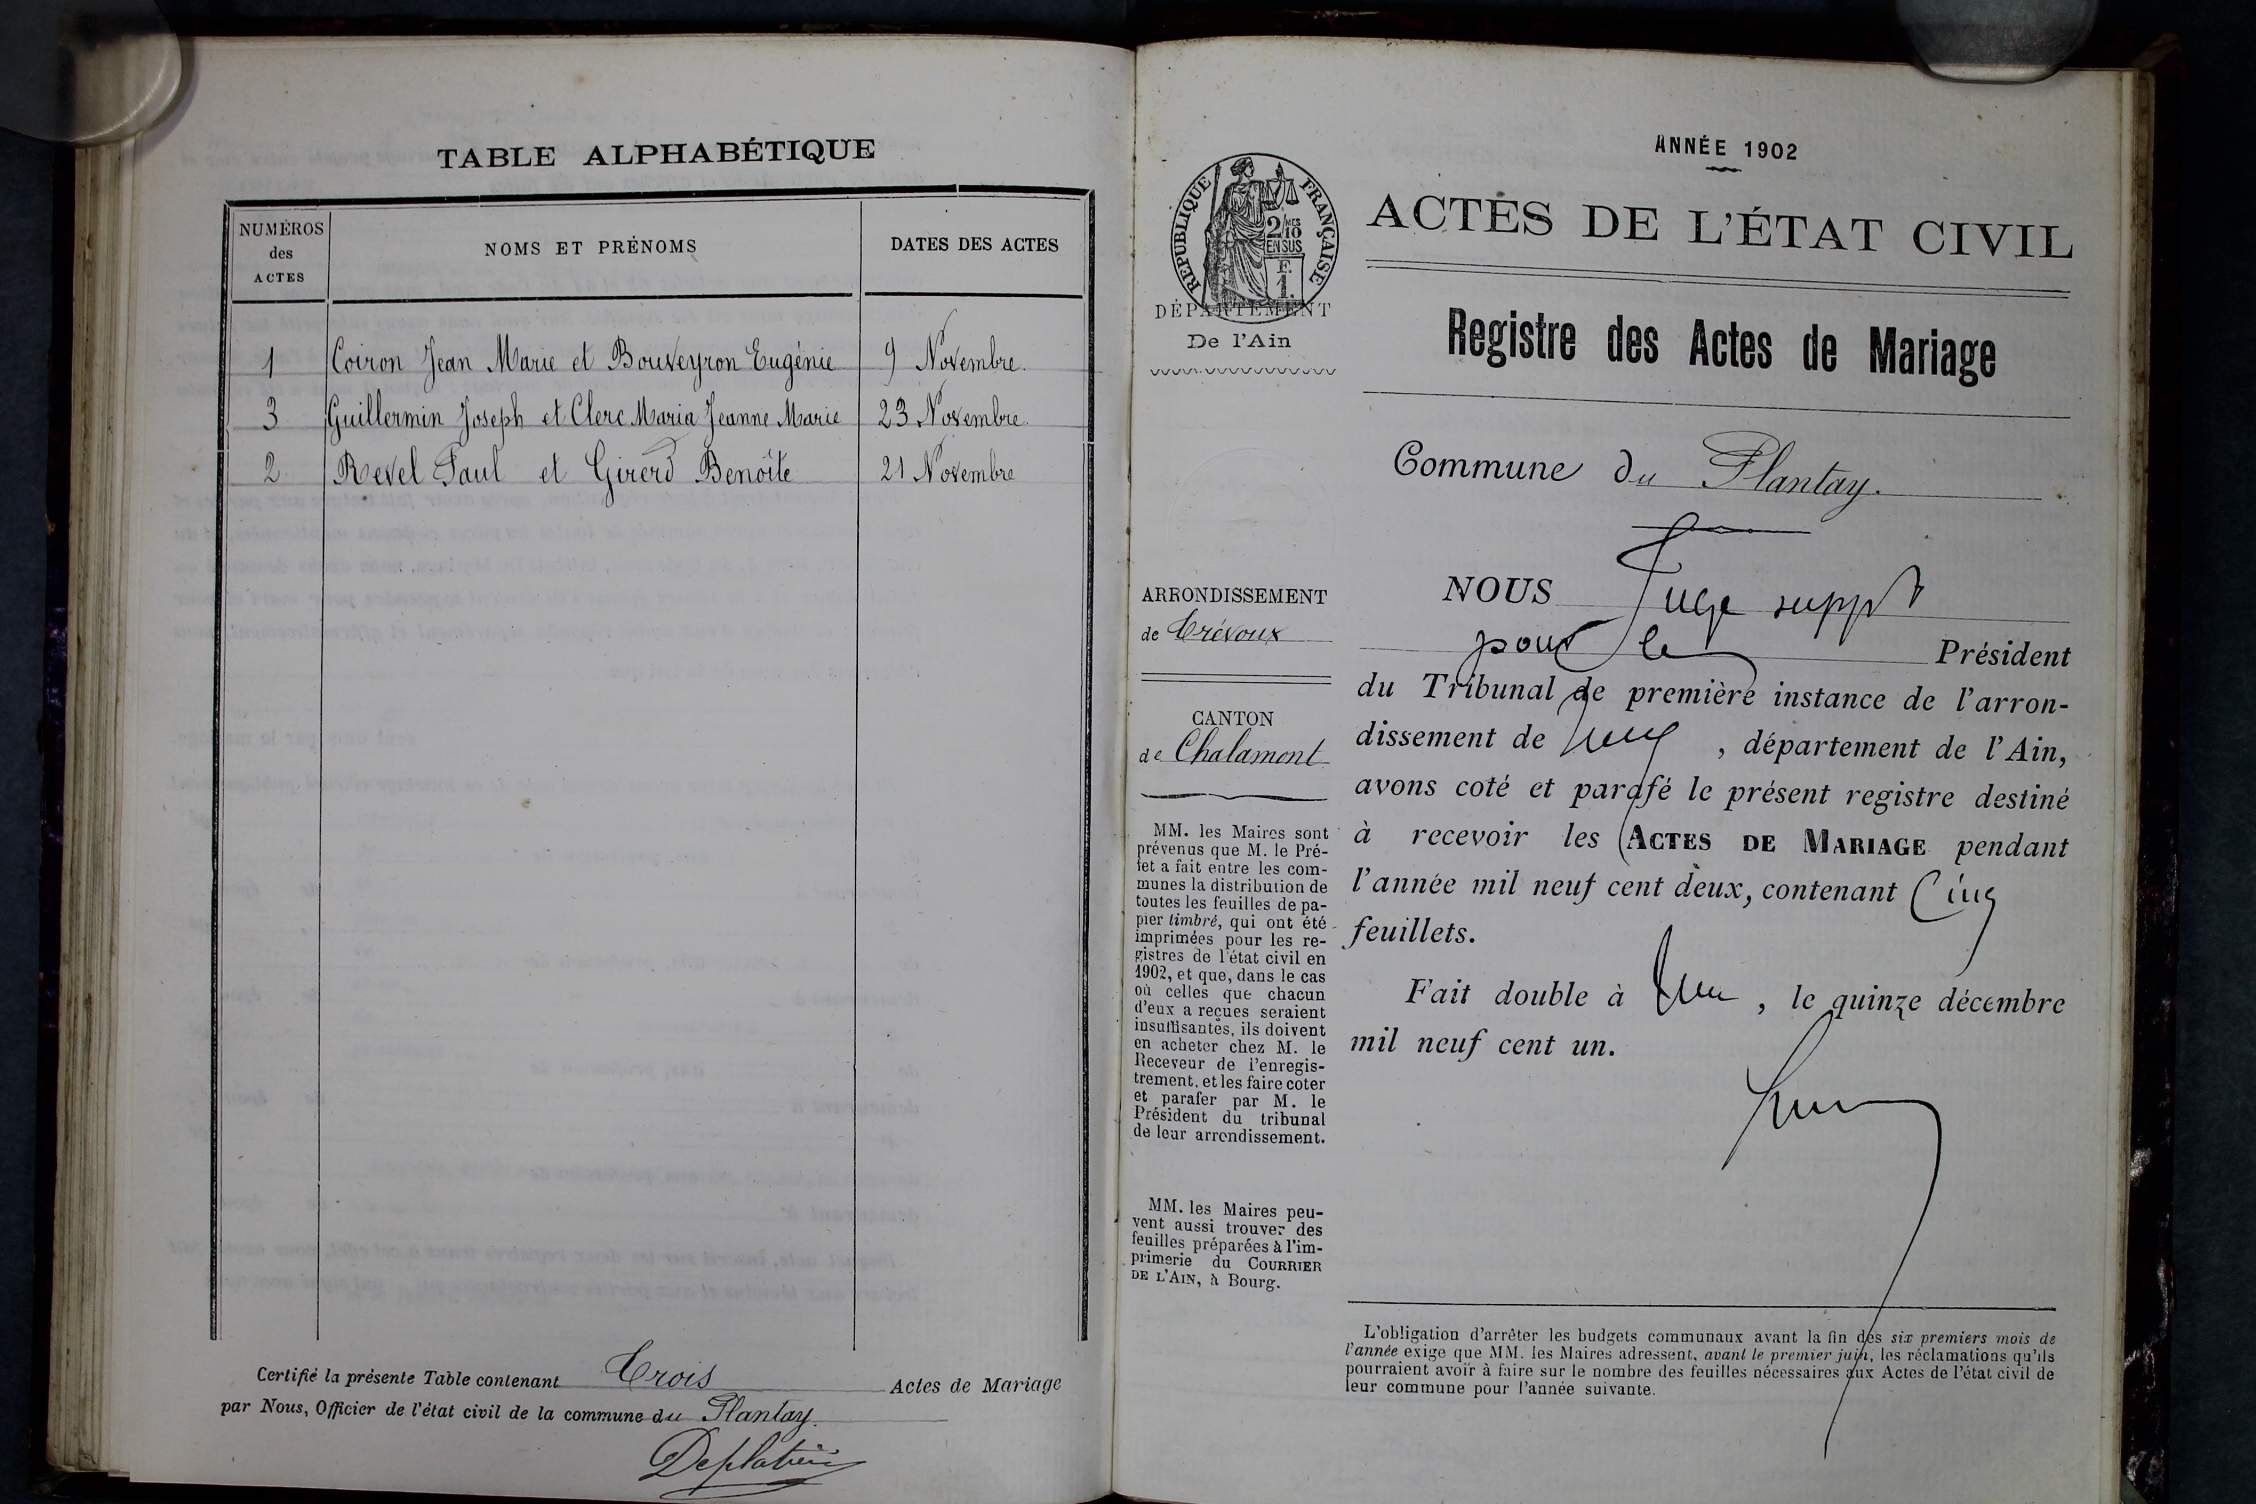 TABLE ALPHABÉTIQUE
NUMÉROS des ACTES
NOMS ET PRÉNOMS
DATES DES ACTES
1 Coiron Jean Marie et Bouveyron Eugénie 9 Novembre.
3 Guillermin Joseph et Clerc Maria Jeanne Marie 23 Novembre.
2 Revel Paul et Girerd Benoîte 21 Novembre
Certifié la présente Table contenant Trois Actes de Mariage
par Nous, Officier de l'état civil de la commune du Plantay.
RÉPUBLIQUE FRANÇAISE
2/10 MES
EN SUS
F.
1.
DÉPARTEMENT
De l'Ain
ARRONDISSEMENT
de Trévoux
CANTON
de Chalamont
MM. les Maires sont
prévenus que M. le Pré-
fet a fait entre les com-
munes la distribution de
toutes les feuilles de pa-
pier timbré, qui ont été
imprimées pour les re-
gistres de l'état civil en
1902, et que, dans le cas
où celles que chacun
d'eux a reçues seraient
insuffisantes, ils doivent
en acheter chez M. le
Receveur de l'enregis-
trement, et les faire coter
et parafer par M. le
Président du tribunal
de leur arrondissement.
MM. les Maires peu-
vent aussi trouver des
feuilles préparées à l'im-
primerie du COURRIER
DE L'AIN, à Bourg.
ANNÉE 1902
ACTES DE L'ÉTAT CIVIL
Registre des Actes de Mariage
Commune du Plantay.
NOUS Juge suppt
pour le Président
du Tribunal de première instance de l'arron-
dissement de , département de l'Ain,
avons coté et parafé le présent registre destiné
à recevoir les ACTES DE MARIAGE pendant
l'année mil neuf cent deux, contenant Cinq
feuillets.
Fait double à , le quinze décembre
mil neuf cent un.
L'obligation d'arrêter les budgets communaux avant la fin des six premiers mois de
l'année exige que MM. les Maires adressent, avant le premier juin, les réclamations qu'ils
pourraient avoir à faire sur le nombre des feuilles nécessaires aux Actes de l'état civil de
leur commune pour l'année suivante.